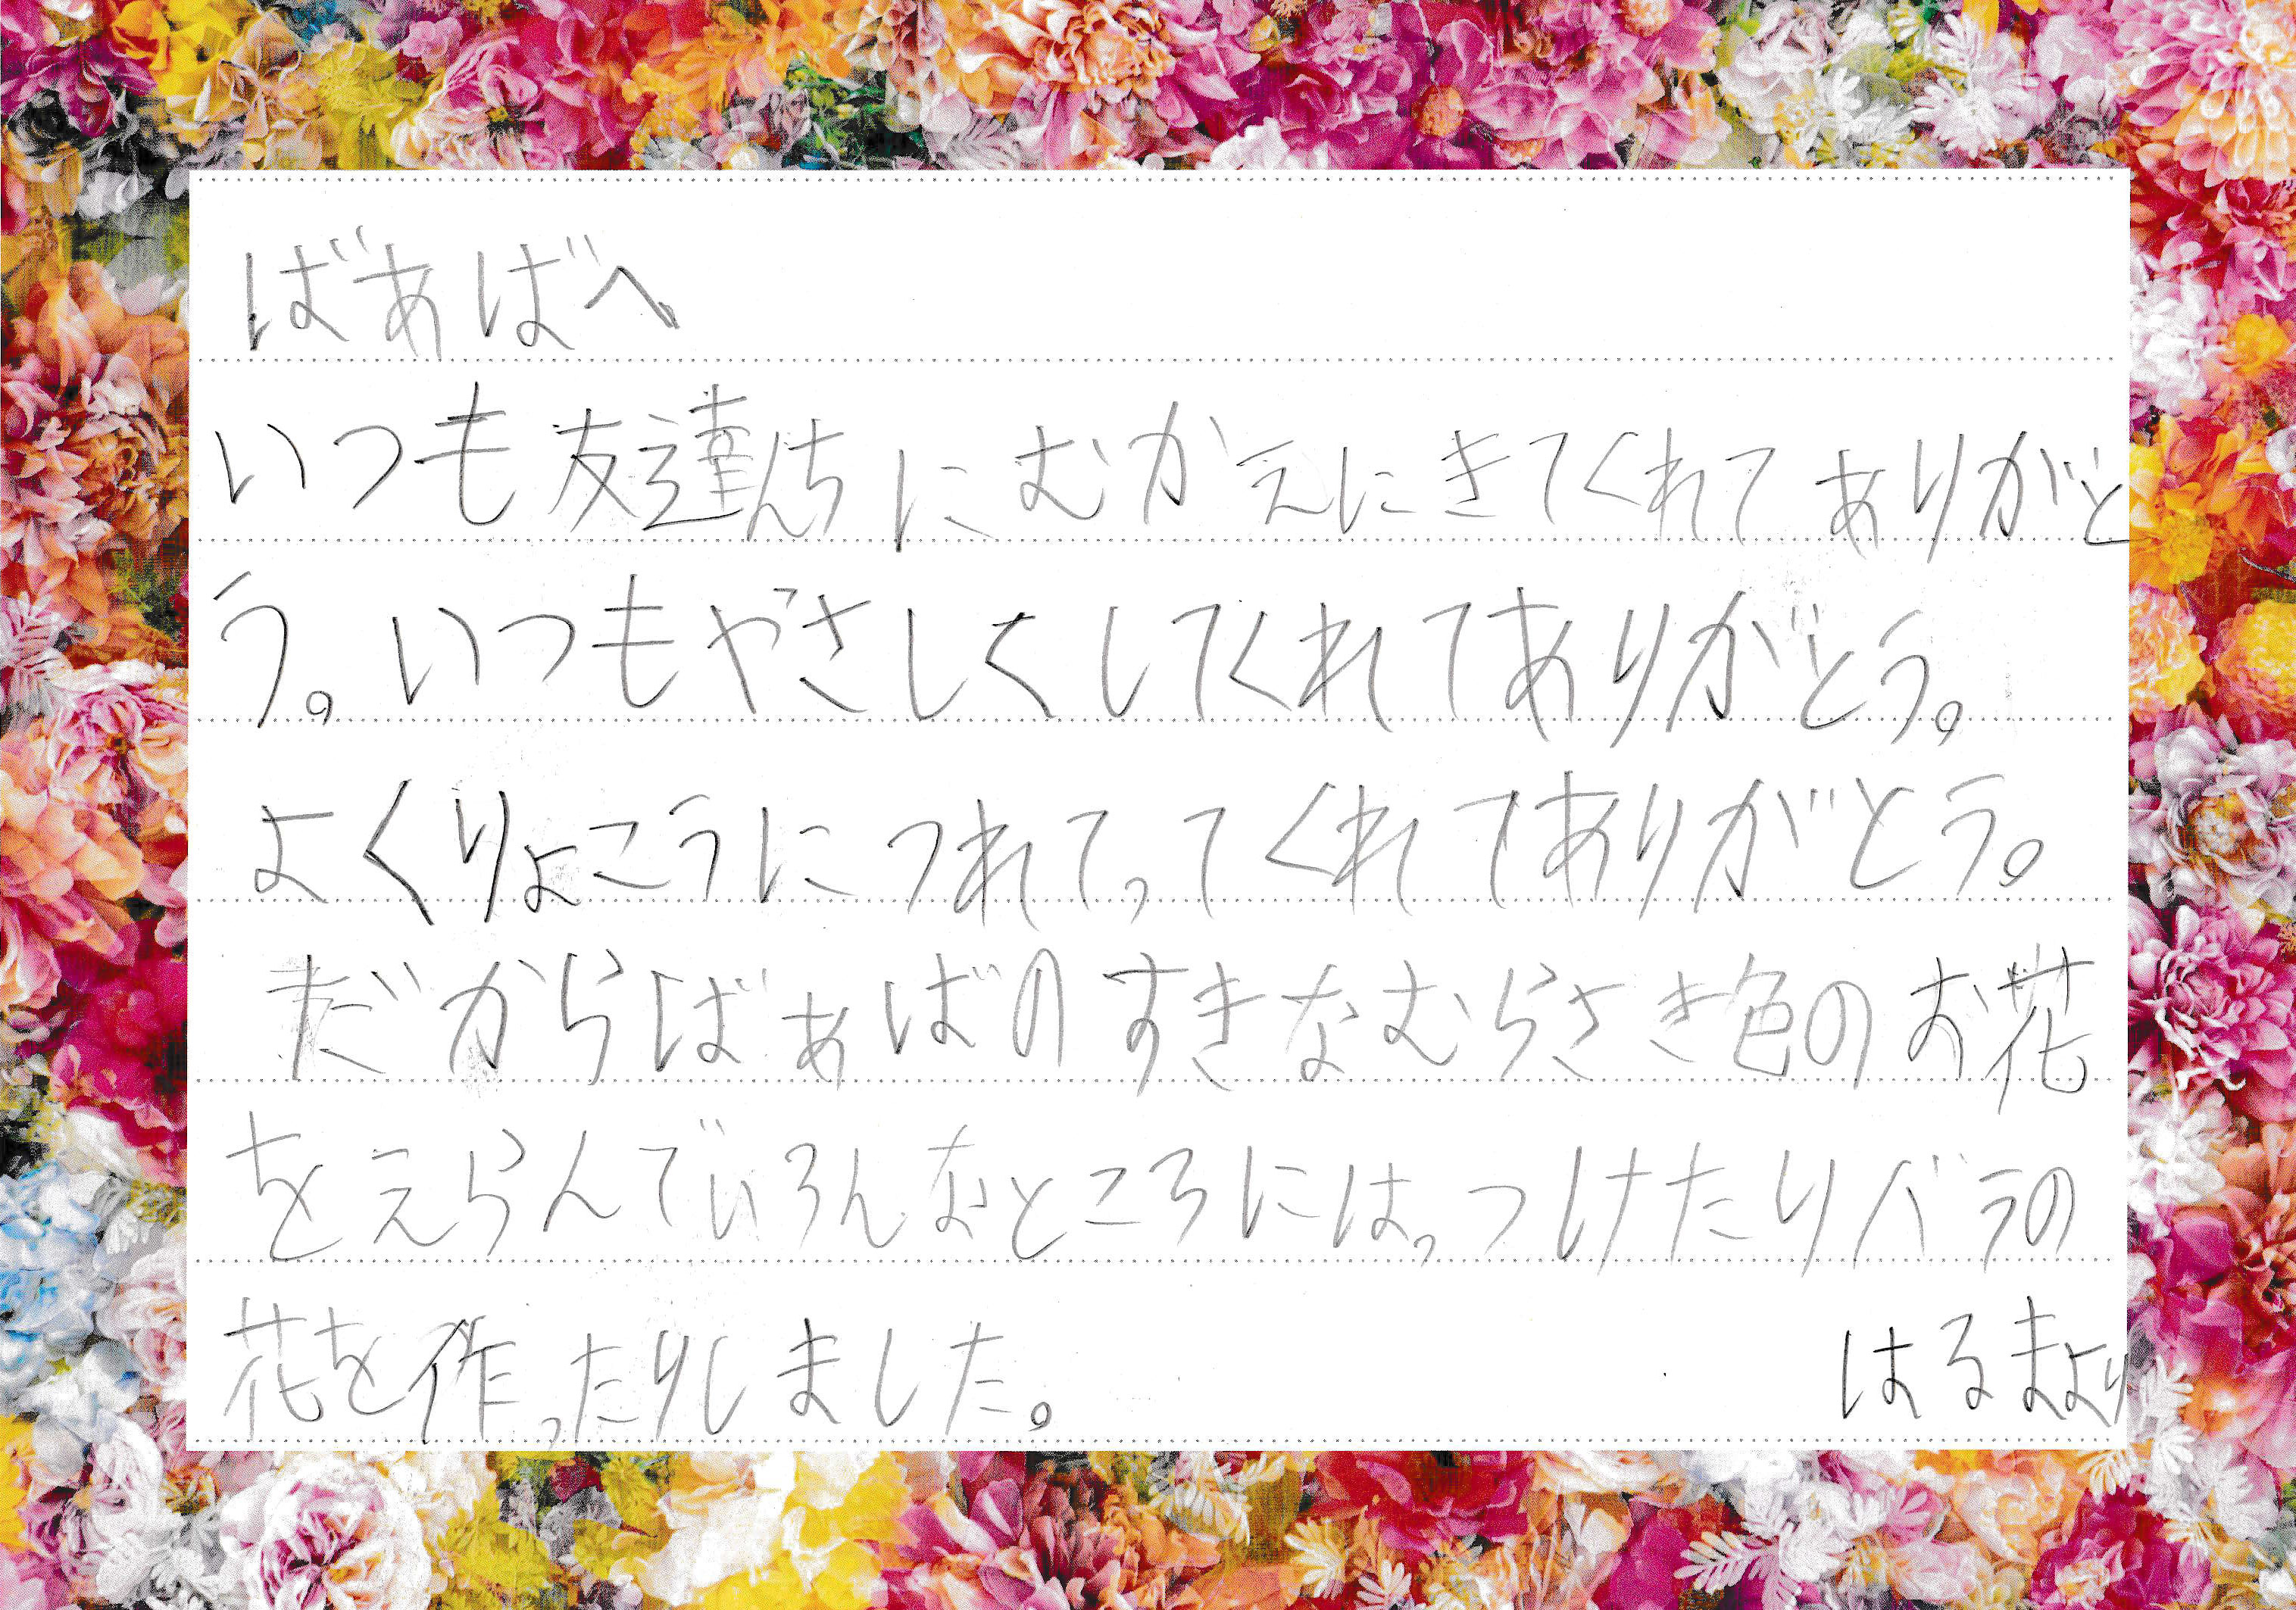 ばあばへ
いつも友達んちにむかえにきてくれてありがと
う。いつもやさしくしてくれてありがとう。
よくりょこうにつれてってくれてありがとう。
だからばあばのすきなむらさき色のお花
をえらんでいろんなところにはっつけたりバラの
花を作ったりしました。 はるまより